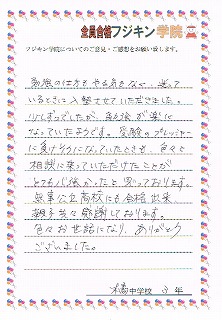 全員合格フジキン学院
フジキン学院についてのご意見・ご感想をお願い致します。
勉強の仕方も やる気もなく、迷って
いるときに入塾させていただきました。
少しずつでしたが、勉強が楽に
なっていたようです。受験のプレッシャー
に負けそうになっていたときも、色々と
相談に乗っていただけたことが
とても心強かったと思っております。
無事公立高校にも合格出来、
親子共々感謝しております。
色々お世話になり、ありがとう
ございました。
中学校 3 年